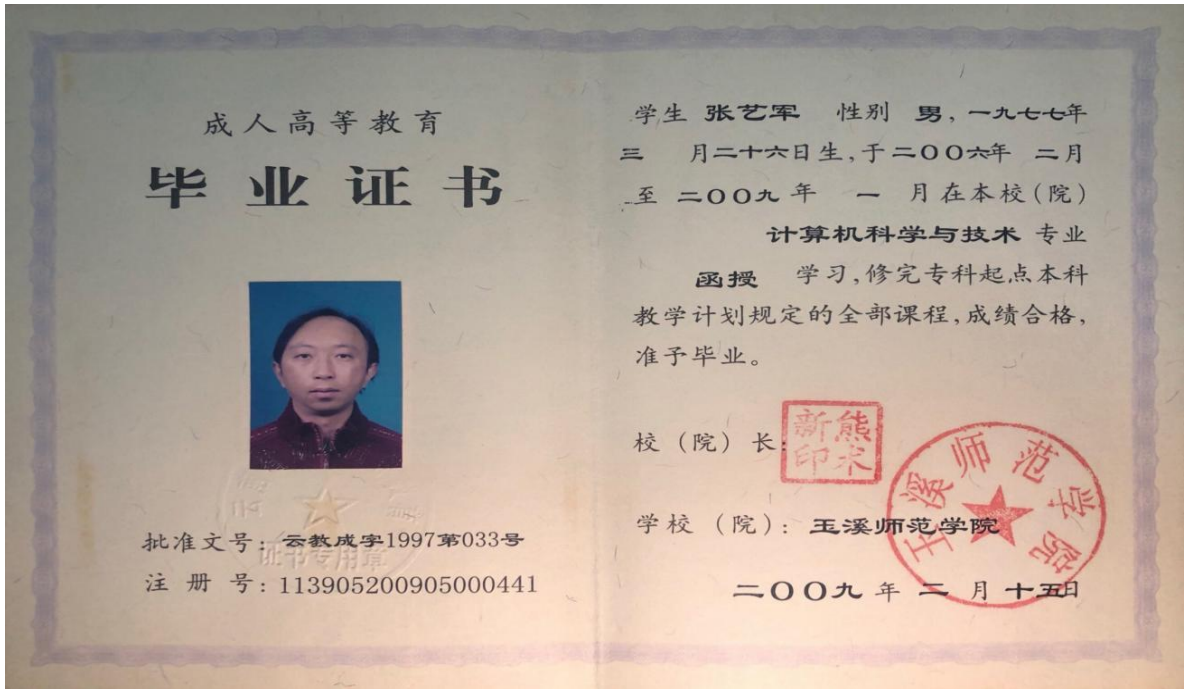 成人高等教育
毕业证书
批准文号：云教成字1997第033号
注册号：113905200905000441
证书专用章
学生 张艺军 性别 男，一九七七年
三 月二十六日生，于二〇〇六年 二月
至 二〇〇九 年 一 月在本校（院）
计算机科学与技术 专业
函授 学习，修完专科起点本科
教学计划规定的全部课程，成绩合格，
准予毕业。
校（院）长：
熊术新印
学校（院）：玉溪师范学院
玉溪师范学院
二〇〇九 年 二 月 十五日